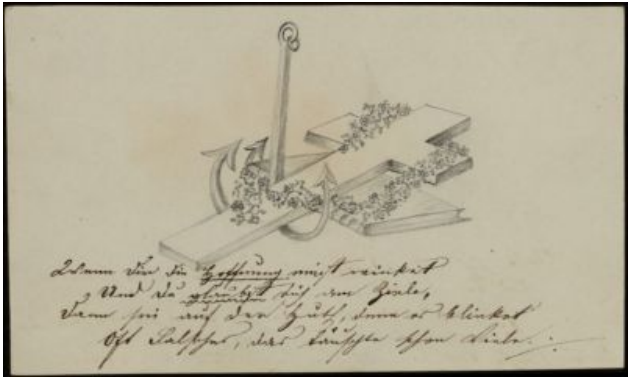 Wenn dir die Hoffnung einst winket
Und du glaubst dich am Ziele,
Dann sei auf der Hut, denn es blinket
Oft Falsches, das täuschte schon Viele.